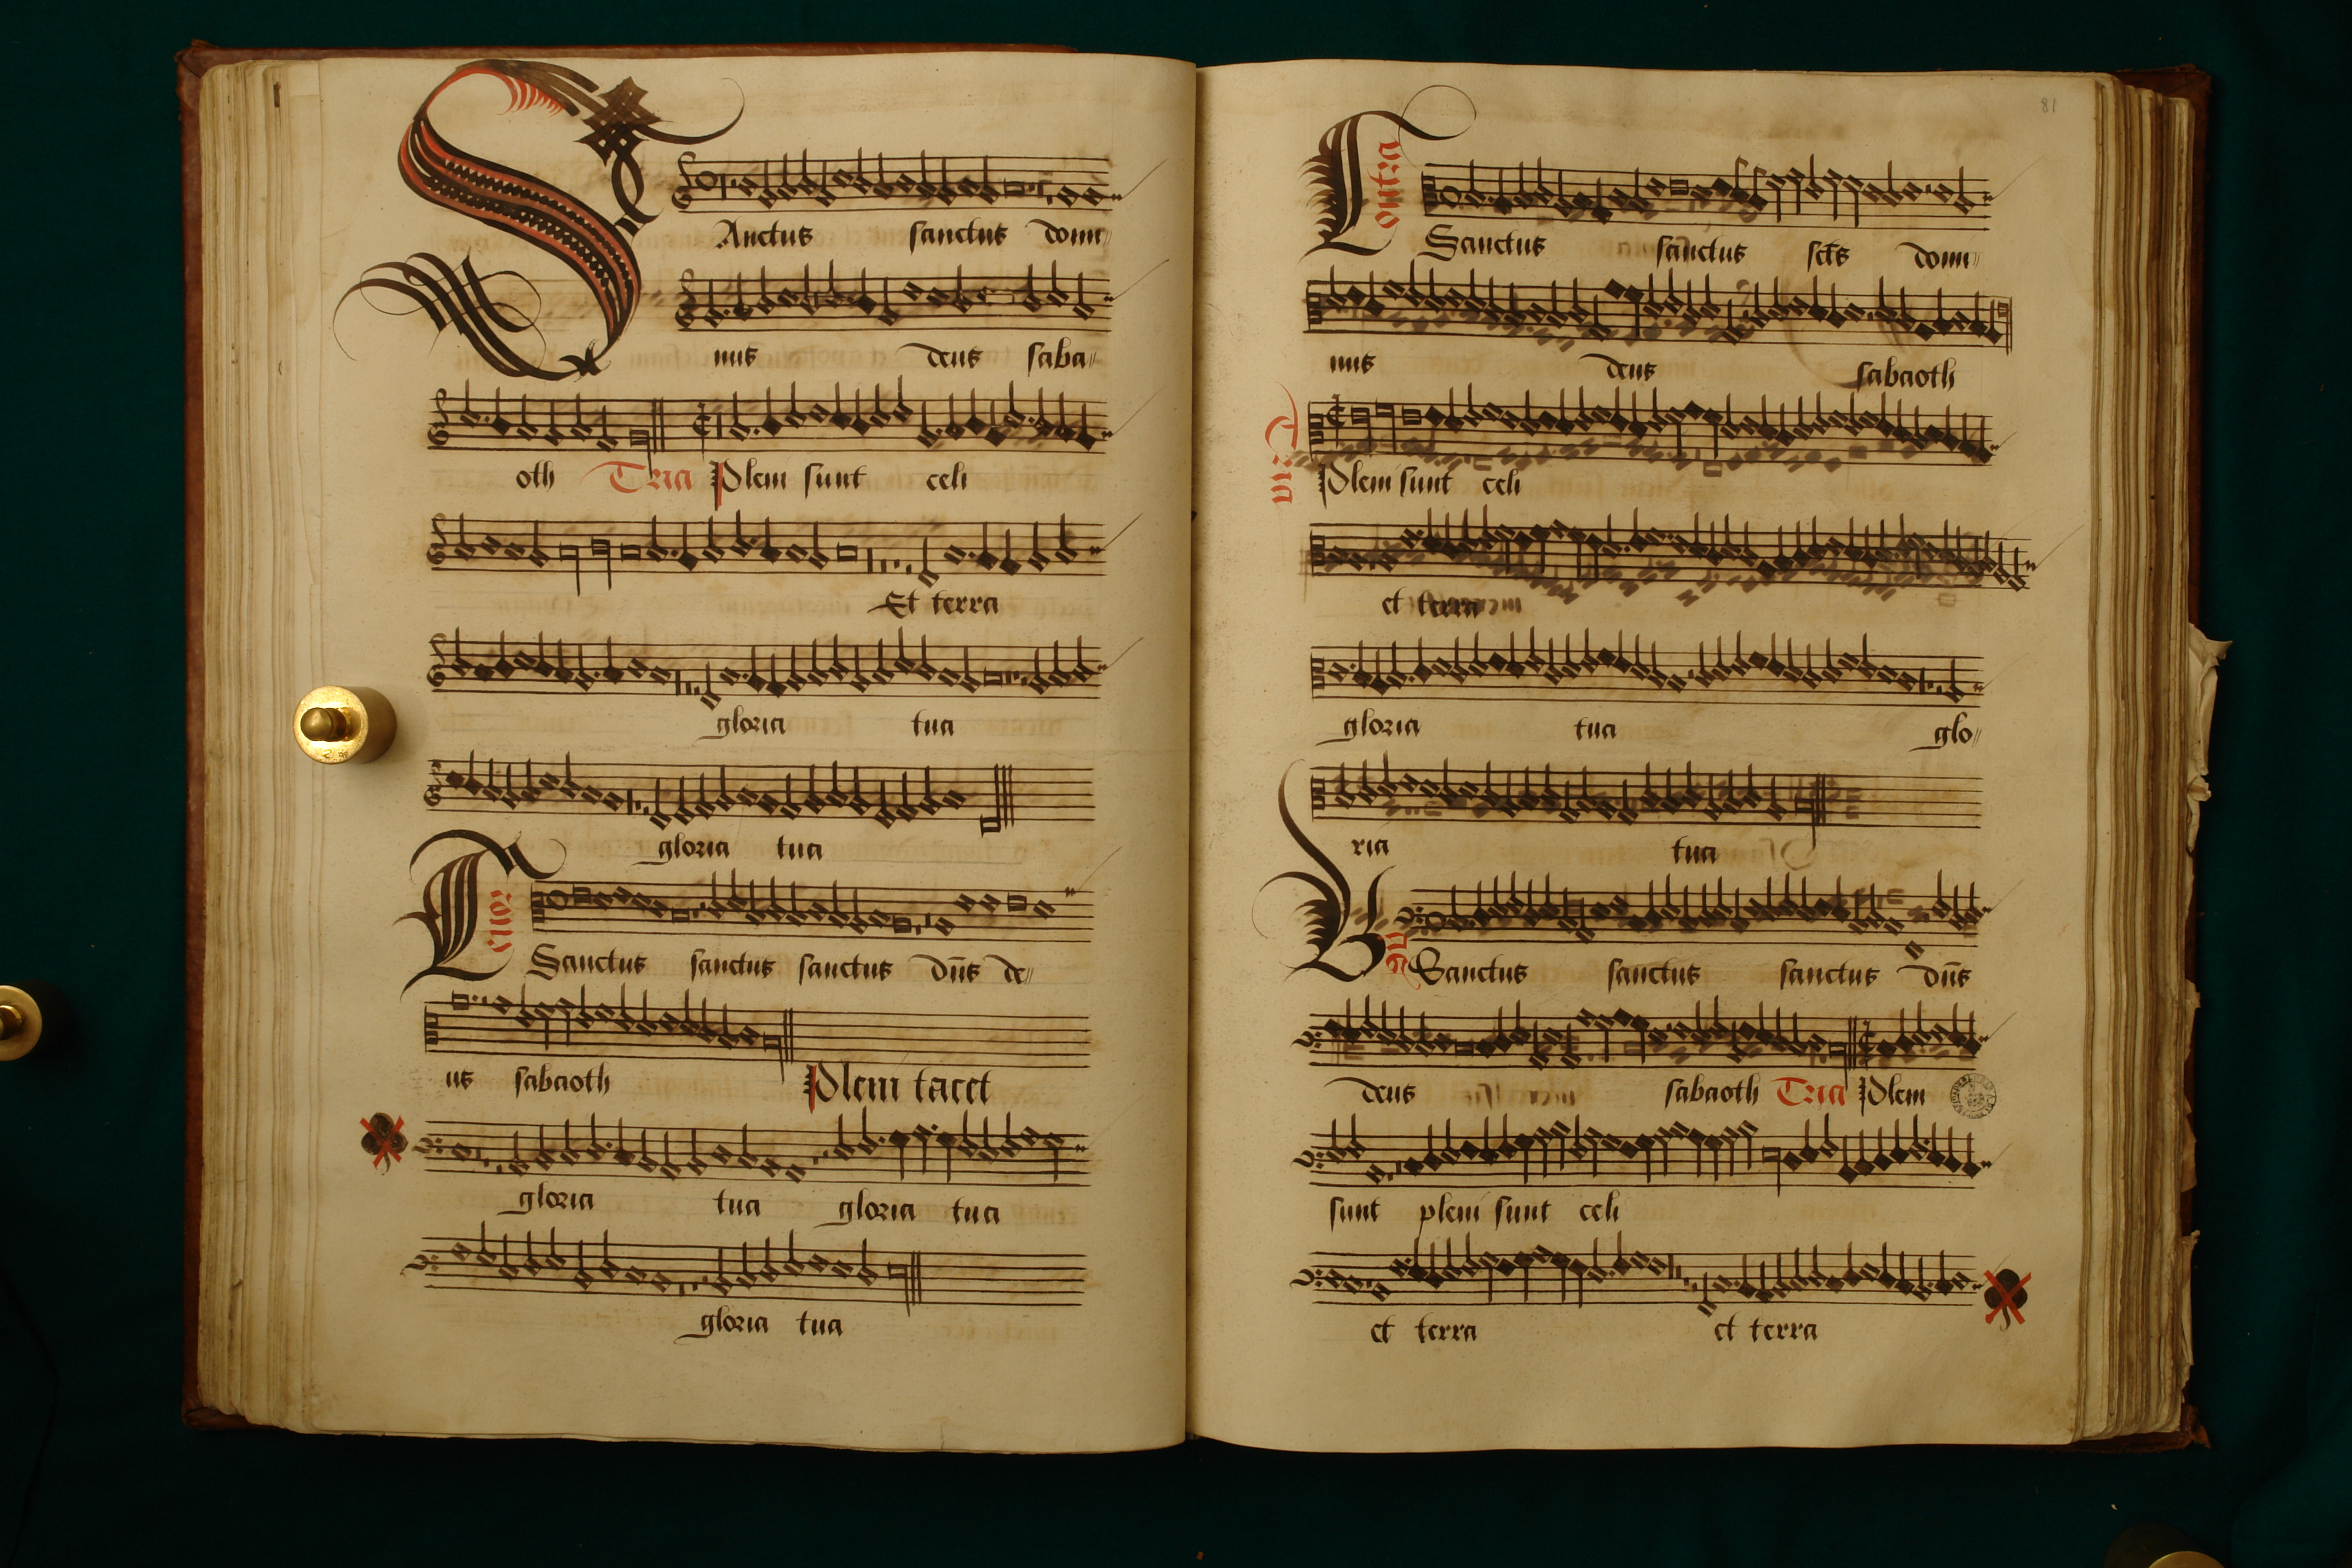 SAnctus sanctus domi-
nus deus saba-
oth Tria Pleni sunt celi
Et terra
gloria tua
gloria tua
Tenor
Sanctus sanctus sanctus dns de-
us sabaoth Pleni tacet
gloria tua gloria tua
gloria tua
81
Contra
Sanctus sanctus scts domi-
nus deus sabaoth
Tria
Pleni sunt celi
et terra
gloria tua glo-
ria tua
Sanctus sanctus sanctus dns
deus sabaoth Tria Pleni
sunt pleni sunt celi
et terra et terra